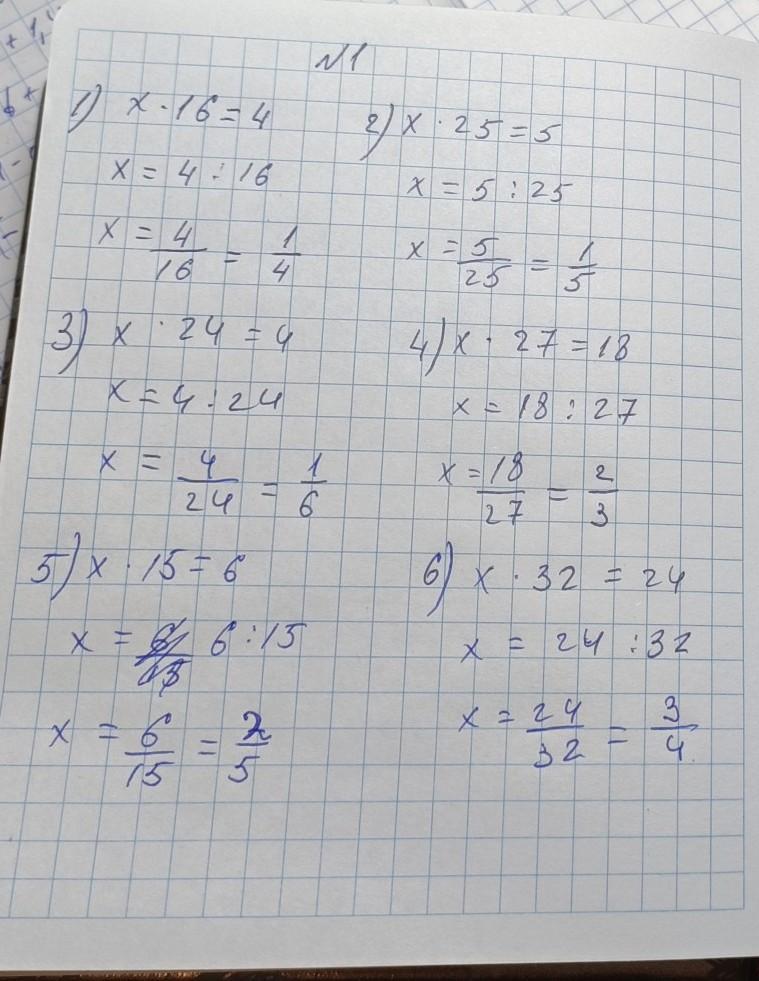 №1
1) x · 16 = 4
x = 4 : 16
x = 4/16 = 1/4
2) x · 25 = 5
x = 5 : 25
x = 5/25 = 1/5
3) x · 24 = 4
x = 4 : 24
x = 4/24 = 1/6
4) x · 27 = 18
x = 18 : 27
x = 18/27 = 2/3
5) x · 15 = 6
x = 6 : 15
x = 6/15 = 2/5
6) x · 32 = 24
x = 24 : 32
x = 24/32 = 3/4